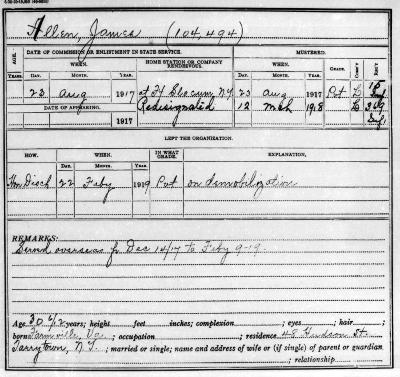 Allen, James (104,494)
AGE. DATE OF COMMISSION OR ENLISTMENT IN STATE SERVICE. MUSTERED.
WHEN. HOME STATION OR COMPANY RENDEZVOUS. WHEN. GRADE. CO'Y REG'T
YEARS. DAY. MONTH. YEAR. DAY. MONTH. YEAR.
23 Aug 1917 at Ft Slocum, N.Y. 23 Aug 1917 Pvt L 15 Inf
DATE OF APPEARING. Redesignated 12 Mch 1918 L 369 Inf
1917
LEFT THE ORGANIZATION.
HOW. WHEN. IN WHAT GRADE. EXPLANATION.
DAY. MONTH. YEAR.
Hon Disch 22 Feby 1919 Pvt on demobilization
REMARKS:
Served overseas fr Dec 14/17 to Feby 9-19.
Age 30 6/12 years; height feet inches; complexion ; eyes ; hair ;
born Farmville, Va. ; occupation ; residence 48 Hudson St.
Tarrytown, N.Y. ; married or single; name and address of wife or (if single) of parent or guardian
; relationship